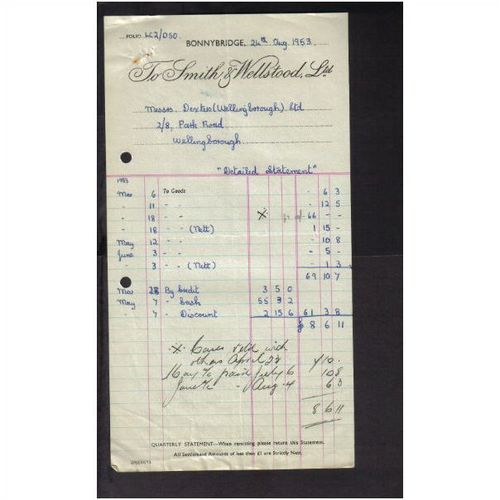 FOLIO LC2/DSO.
BONNYBRIDGE, 24th Aug. 1953.
To Smith & Wellstood, Ltd
Messrs. Dexter (Wellingborough) Ltd
2/8, Park Road.
Wellingborough.
"Detailed Statement"
1953
Mar 6 To Goods - 6 3
- 11 - - - 12 5
- 18 - - * 66 - -
- 18 - - (Nett) 1 15 -
May 12 - - - 10 8
June 3 - - - 5 -
- 3 - - (Nett) - 1 3
69 10 7
Mar 28 By Credit 3 5 0
May 7 - Cash 55 3 2
- 7 - Discount 2 15 6 61 3 8
£ 8 6 11
* Cases with
others April 29
May a/c July 6 10 8
June a/c - Aug 4 6 3
8 6 11
QUARTERLY STATEMENT—When remitting please return this Statement.
All Settlement Amounts of less than £1 are Strictly Nett.